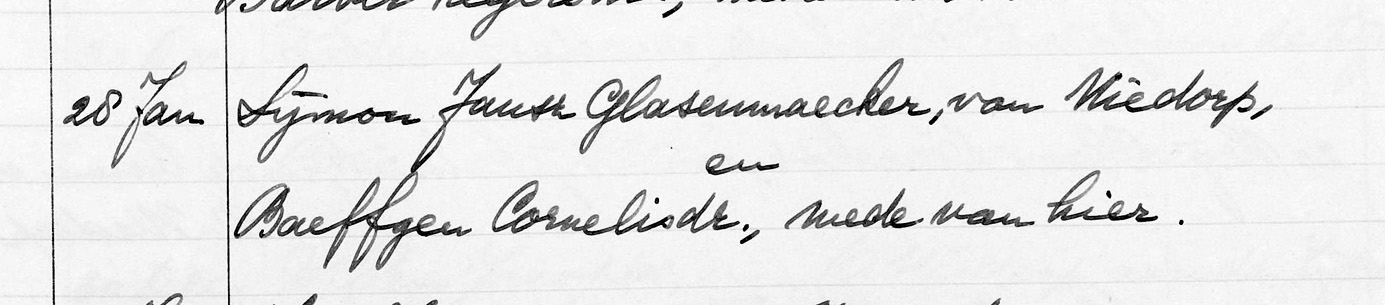 28 Jan Sÿmon Jansz Glasenmaecker, van Niedorp,
en
Baeffgen Cornelisdr., mede van hier.